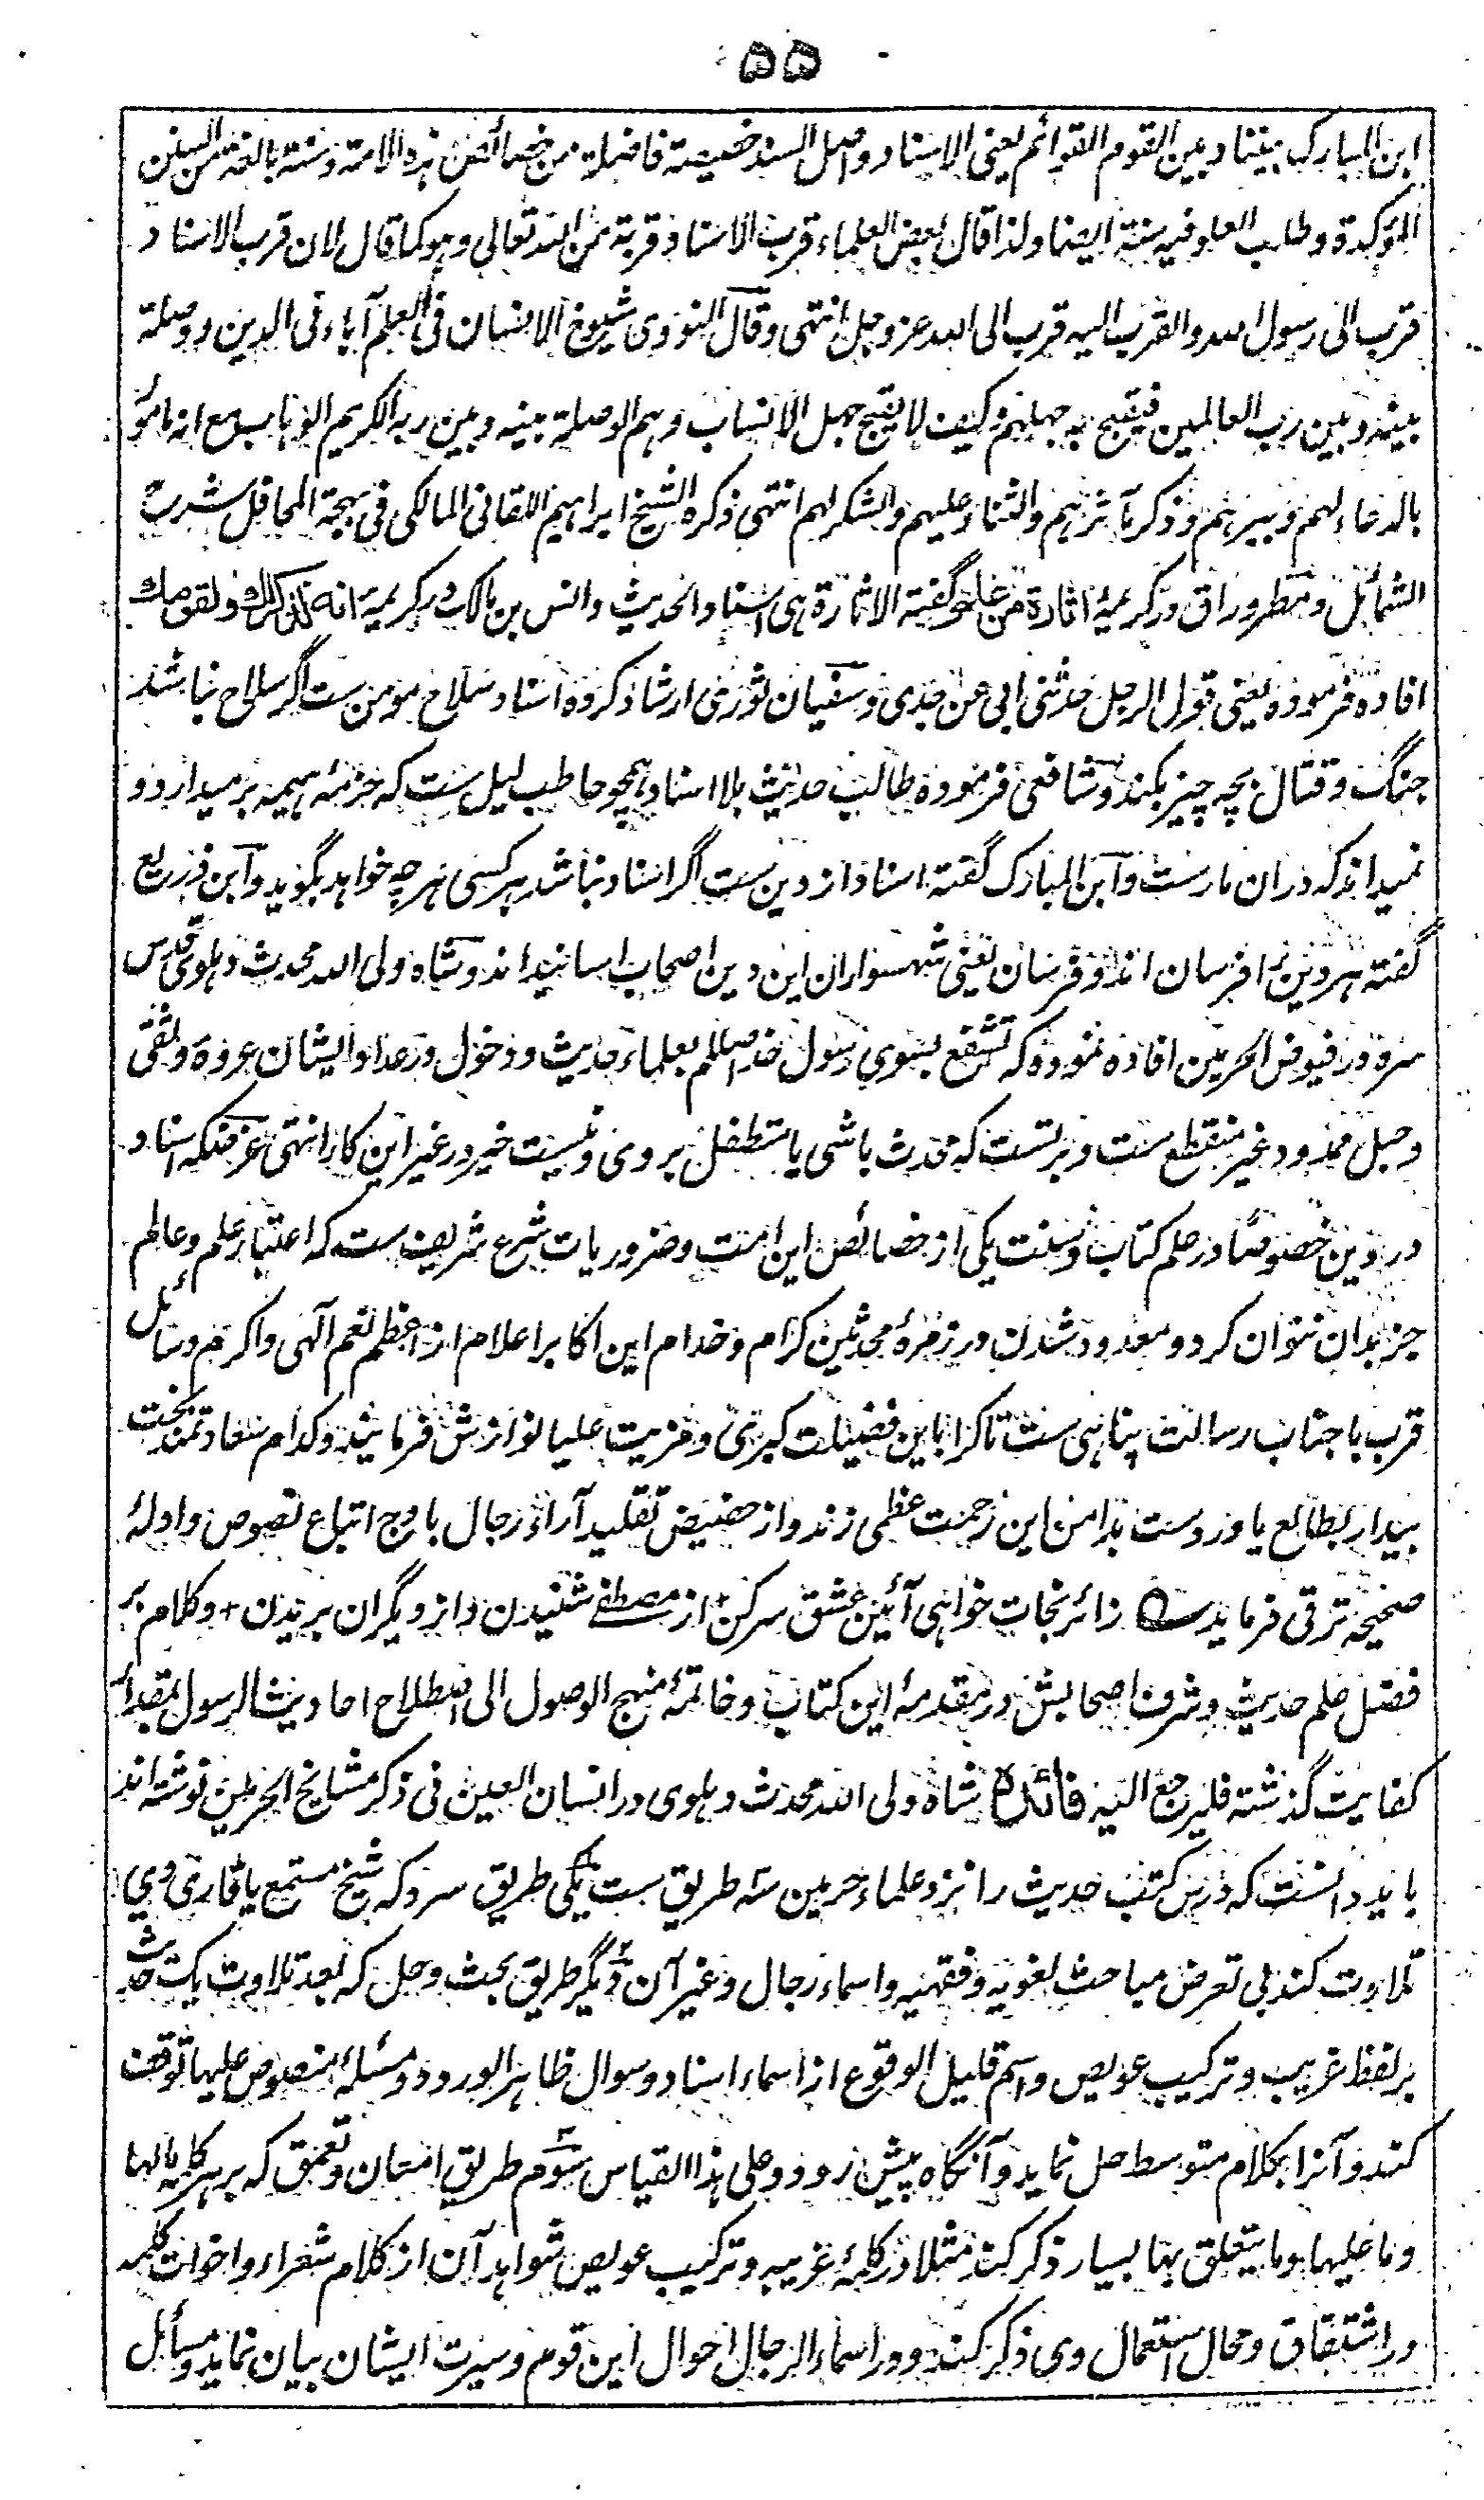 ۵۵
ابن المبارک بیننا و بین القوم القوائم یعنی الاسناد و اصل السند خصیصة فاضلة من خصائص هذه الامة و سنة بالغة من السنن
المؤکدة و طلب العلو فیه سنة ایضا و لذا قال بعض العلماء قرب الاسناد قربة من الله تعالی و هو کما قال لان قرب الاسناد
قرب الی رسول الله و القرب الیه قرب الی الله عز و جل انتهی و قال النووی شیوخ الانسان فی العلم آباء فی الدین و وصلة
بینه و بین رب العالمین فیقبح به جهلهم و کیف لا یقبح جهل الانساب و هم الوصلة بینه و بین ربه الکریم الوهاب مع انه مامور
بالدعاء لهم و ببرهم و ذکر مآثرهم و الثناء علیهم و الشکر لهم انتهی ذکره الشیخ ابراهیم اللقانی المالکی فی بهجة المحافل شرح
الشمائل و مطر وراق در کریمۀ اثارة من علم گفته الاثارة هی اسناد الحدیث و انس بن مالک در کریمۀ انه لذکر لك و لقومك
افاده فرموده یعنی قول الرجل حدثنی ابی عن جدی و سفیان ثوری ارشاد کرده اسناد سلاح مومن ست اگر سلاح نباشد
جنگ و قتال بچه چیز بکند و شافعی فرموده طالب حدیث بلا اسناد همچو حاطب لیل ست که حزمۀ هیمه بر میدارد و
نمیداند که دران مارست و ابن المبارک گفته اسناد از دین ست اگر اسناد نباشد هر کسی هرچه خواهد بگوید و ابن زریع
گفته هر دین را فرسان اند و فرسان یعنی شهسواران این دین اصحاب اسانید اند و شاه ولی الله محدث دهلوی قدس
سره در فیوض الحرمین افاده نموده که تشفع بسوی رسول خدا صلعم بعلماء حدیث و دخول در عداد ایشان عروۀ وثقی
و حبل ممدود غیر منقطع ست و بر تست که محدث باشی یا متطفل بر وی و نیست خیر در غیر این کار انتهی غرضکه اسناد
در دین خصوصا در علم کتاب و سنت یکی از خصائص این امت و ضروریات شرع شریف ست که اعتبار علم و عالم
جز بدان نتوان کرد و معدود شدن در زمرۀ محدثین کرام و خدام این اکابر اعلام از اعظم نعم الهی و اکرم وسائل
قرب با جناب رسالت پناهی ست تا کرا باین فضیلت کبری و مزیت علیا نوازش فرمایند و کدام سعادتمند بخت
بیدار بطالع یاور دست بدامن این رحمت عظمی زند و از حضیض تقلید آراء رجال باوج اتباع نصوص و ادلۀ
صحیحه ترقی فرماید ؎ زائر نجات خواهی آئین عشق سر کن + از مصطفے شنیدن و از دیگران بریدن + و کلام بر
فضل علم حدیث و شرف اصحابش در مقدمۀ این کتاب و خاتمۀ منهج الوصول الی اصطلاح احادیث الرسول بقدر
کفایت گذشته فلیرجع الیه فائدہ شاه ولی الله محدث دهلوی در انسان العین فی ذکر مشایخ الحرمین نوشته اند
باید دانست که درس کتب حدیث را نزد علماء حرمین سه طریق ست یکی طریق سرد که شیخ مستمع یا قاری وی
تلاوت کند بی تعرض مباحث لغویه و فقهیه و اسماء رجال و غیر آن دیگر طریق بحث و حل که بعد تلاوت یک حدیث
بر لفظ غریب و ترکیب عویص و اسم قلیل الوقوع از اسماء اسناد و سوال ظاهر الورود و مسئلۀ منصوص علیها توقف
کند و آنرا بکلام متوسط حل نماید و آنگاه پیش رود و علی هذا القیاس سوم طریق امعان و تعمق که بر هر کلمه مالها
و ما علیها و ما یتعلق بها بسیار ذکر کند مثلا در کلمۀ غریبه و ترکیب عویص شواهد آن از کلام شعراء و اخوات کلمه
در اشتقاق و محال استعمال وی ذکر کند و در اسماء الرجال احوال این قوم و سیرت ایشان بیان نماید و مسائل